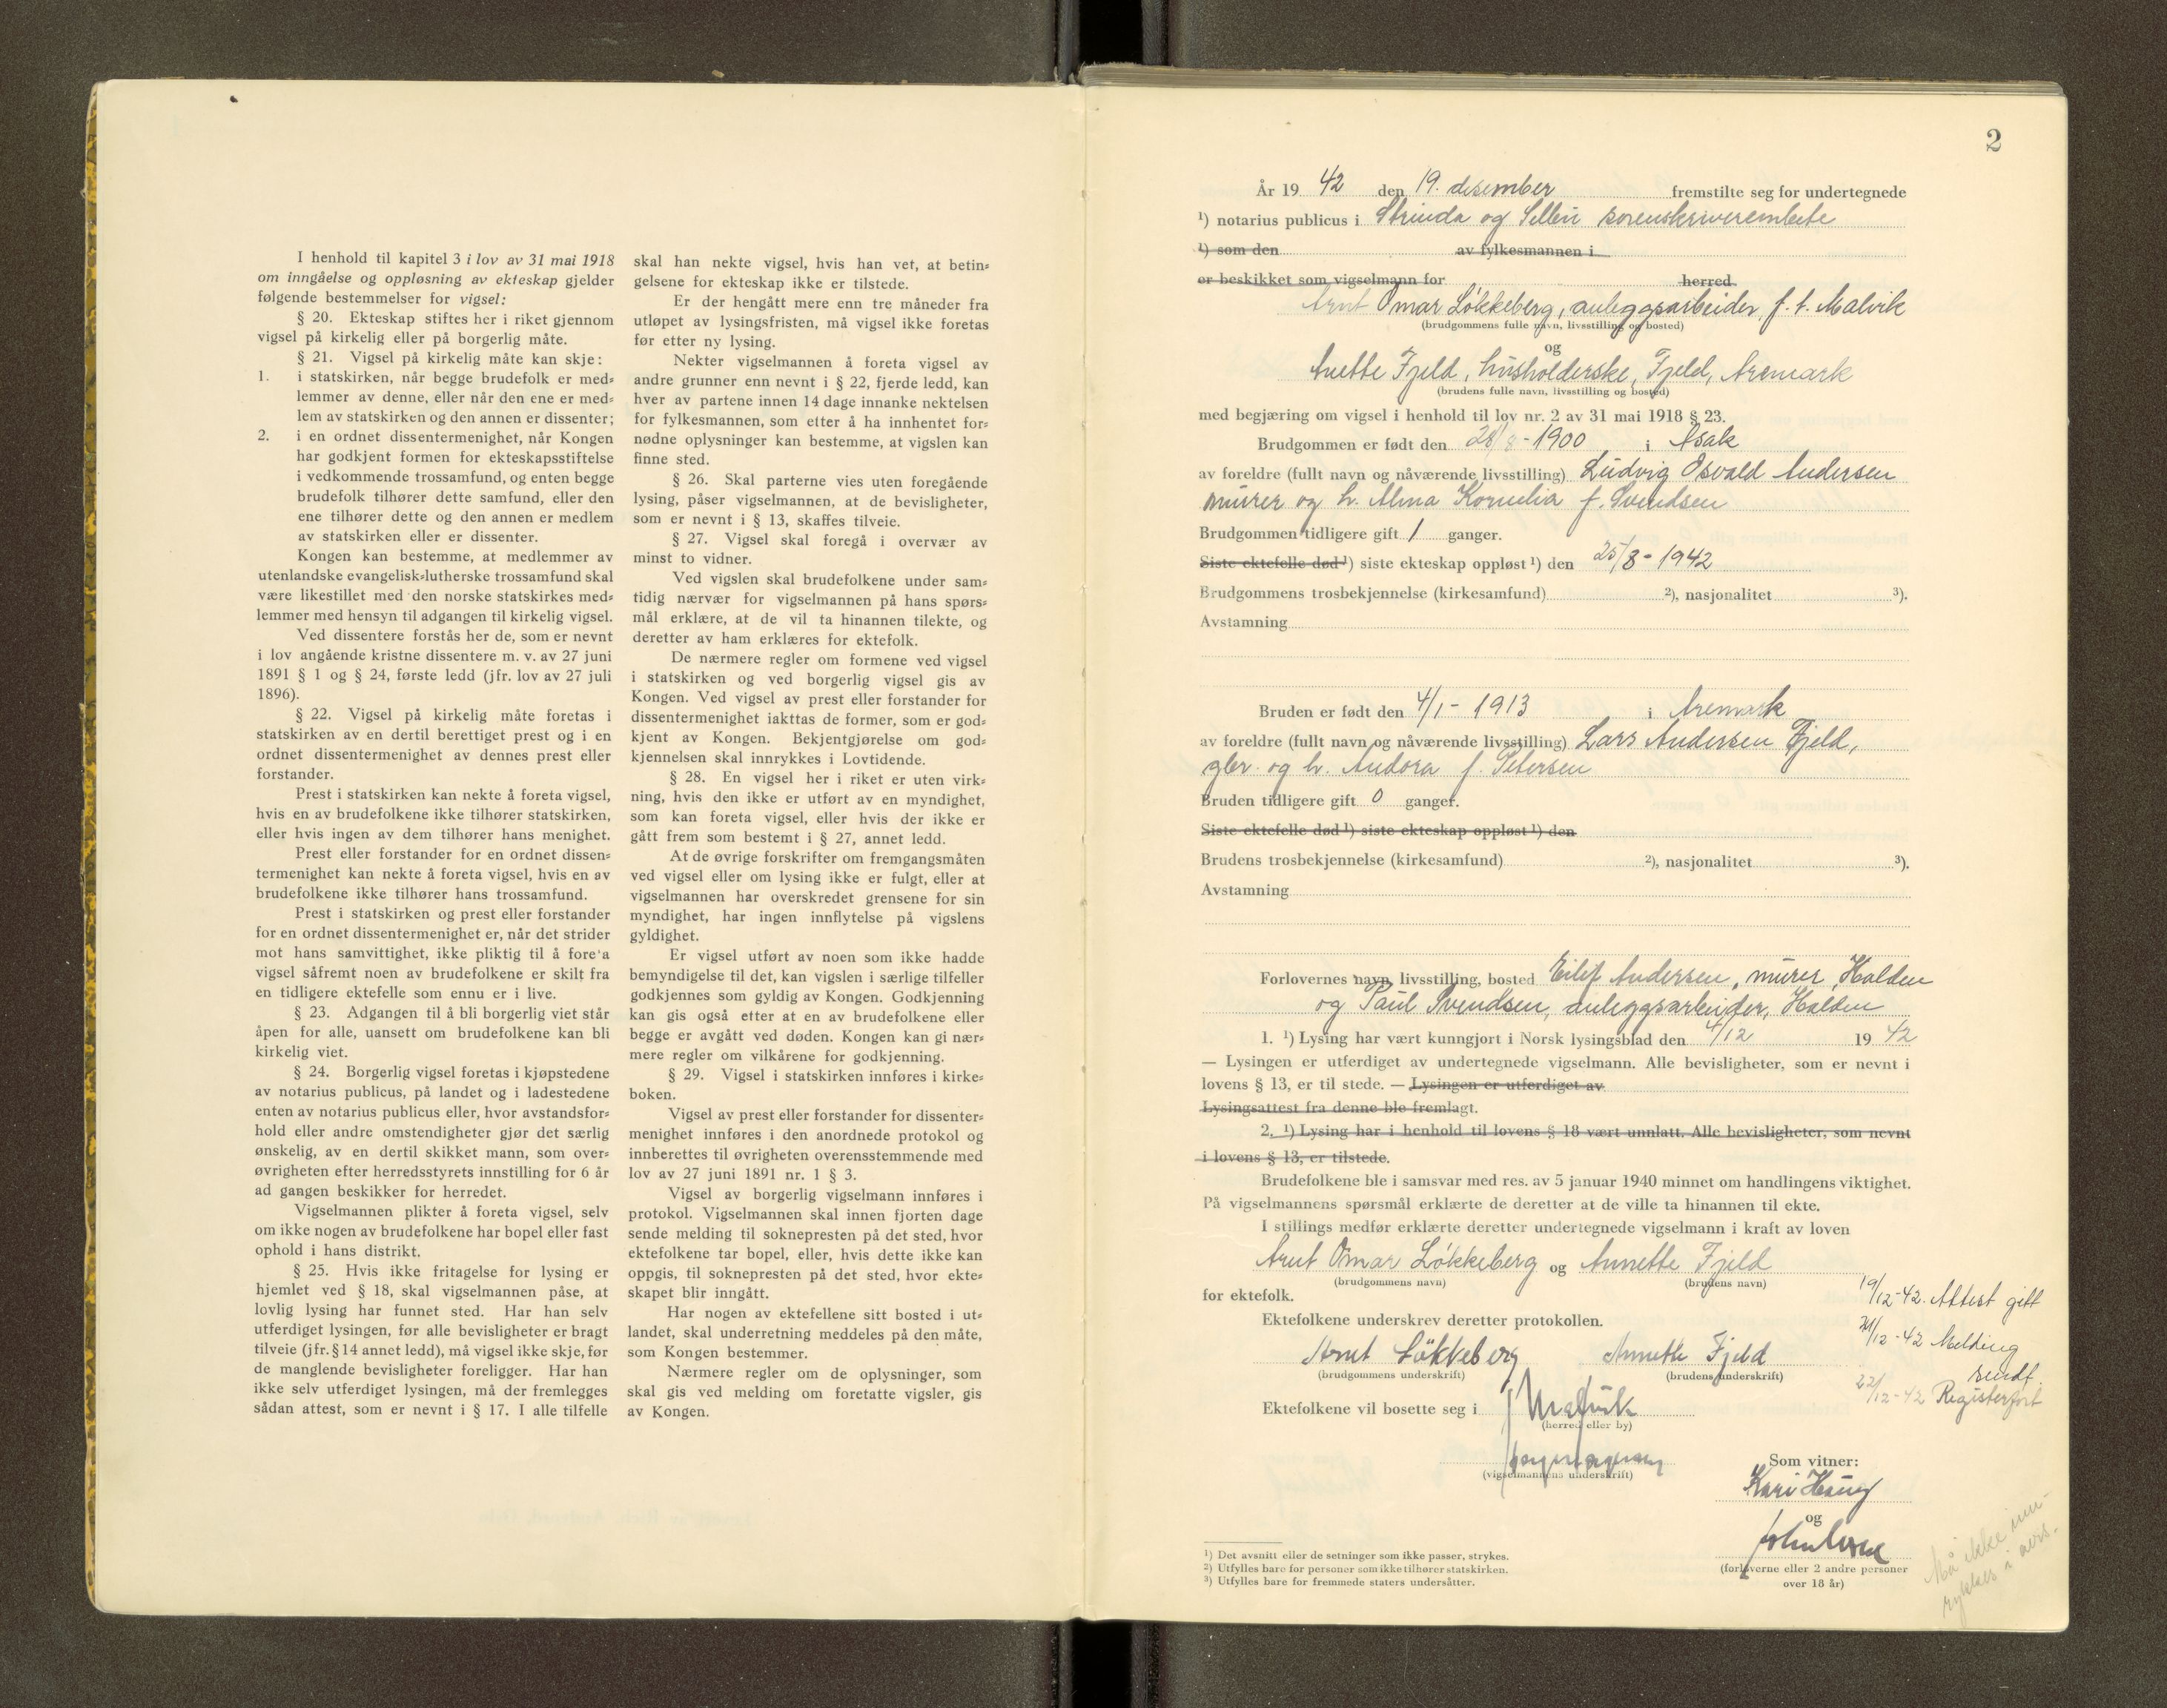 I henhold til kapitel 3 i lov av 31 mai 1918
om inngåelse og oppløsning av ekteskap gjelder
følgende bestemmelser for vigsel:
§ 20. Ekteskap stiftes her i riket gjennom
vigsel på kirkelig eller på borgerlig måte.
§ 21. Vigsel på kirkelig måte kan skje:
1. i statskirken, når begge brudefolk er med=
lemmer av denne, eller når den ene er med=
lem av statskirken og den annen er dissenter;
2. i en ordnet dissentermenighet, når Kongen
har godkjent formen for ekteskapsstiftelse
i vedkommende trossamfund, og enten begge
brudefolk tilhører dette samfund, eller den
ene tilhører dette og den annen er medlem
av statskirken eller er dissenter.
Kongen kan bestemme, at medlemmer av
utenlandske evangelisk=lutherske trossamfund skal
være likestillet med den norske statskirkes med=
lemmer med hensyn til adgangen til kirkelig vigsel.
Ved dissentere forstås her de, som er nevnt
i lov angående kristne dissentere m. v. av 27 juni
1891 § 1 og § 24, første ledd (jfr. lov av 27 juli
1896).
§ 22. Vigsel på kirkelig måte foretas i
statskirken av en dertil berettiget prest og i en
ordnet dissentermenighet av dennes prest eller
forstander.
Prest i statskirken kan nekte å foreta vigsel,
hvis en av brudefolkene ikke tilhører statskirken,
eller hvis ingen av dem tilhører hans menighet.
Prest eller forstander for en ordnet dissen=
termenighet kan nekte å foreta vigsel, hvis en av
brudefolkene ikke tilhører hans trossamfund.
Prest i statskirken og prest eller forstander
for en ordnet dissentermenighet er, når det strider
mot hans samvittighet, ikke pliktig til å fore'a
vigsel såfremt noen av brudefolkene er skilt fra
en tidligere ektefelle som ennu er i live.
§ 23. Adgangen til å bli borgerlig viet står
åpen for alle, uansett om brudefolkene kan bli
kirkelig viet.
§ 24. Borgerlig vigsel foretas i kjøpstedene
av notarius publicus, på landet og i ladestedene
enten av notarius publicus eller, hvor avstandsfor=
hold eller andre omstendigheter gjør det særlig
ønskelig, av en dertil skikket mann, som over=
øvrigheten efter herredsstyrets innstilling for 6 år
ad gangen beskikker for herredet.
Vigselmannen plikter å foreta vigsel, selv
om ikke nogen av brudefolkene har bopel eller fast
ophold i hans distrikt.
§ 25. Hvis ikke fritagelse for lysing er
hjemlet ved § 18, skal vigselmannen påse, at
lovlig lysing har funnet sted. Har han selv
utferdiget lysingen, før alle bevisligheter er bragt
tilveie (jfr. § 14 annet ledd), må vigsel ikke skje, før
de manglende bevisligheter foreligger. Har han
ikke selv utferdiget lysingen, må der fremlegges
sådan attest, som er nevnt i § 17. I alle tilfelle
skal han nekte vigsel, hvis han vet, at betin=
gelsene for ekteskap ikke er tilstede.
Er der hengått mere enn tre måneder fra
utløpet av lysingsfristen, må vigsel ikke foretas
før etter ny lysing.
Nekter vigselmannen å foreta vigsel av
andre grunner enn nevnt i § 22, fjerde ledd, kan
hver av partene innen 14 dage innanke nektelsen
for fylkesmannen, som etter å ha innhentet for=
nødne oplysninger kan bestemme, at vigslen kan
finne sted.
§ 26. Skal parterne vies uten foregående
lysing, påser vigselmannen, at de bevisligheter,
som er nevnt i § 13, skaffes tilveie.
§ 27. Vigsel skal foregå i overvær av
minst to vidner.
Ved vigslen skal brudefolkene under sam=
tidig nærvær for vigselmannen på hans spørs=
mål erklære, at de vil ta hinannen tilekte, og
deretter av ham erklæres for ektefolk.
De nærmere regler om formene ved vigsel
i statskirken og ved borgerlig vigsel gis av
Kongen. Ved vigsel av prest eller forstander for
dissentermenighet iakttas de former, som er god=
kjent av Kongen. Bekjentgjørelse om god=
kjennelsen skal innrykkes i Lovtidende.
§ 28. En vigsel her i riket er uten virk=
ning, hvis den ikke er utført av en myndighet,
som kan foreta vigsel, eller hvis der ikke er
gått frem som bestemt i § 27, annet ledd.
At de øvrige forskrifter om fremgangsmåten
ved vigsel eller om lysing ikke er fulgt, eller at
vigselmannen har overskredet grensene for sin
myndighet, har ingen innflytelse på vigslens
gyldighet.
Er vigsel utført av noen som ikke hadde
bemyndigelse til det, kan vigslen i særlige tilfeller
godkjennes som gyldig av Kongen. Godkjenning
kan gis også etter at en av brudefolkene eller
begge er avgått ved døden. Kongen kan gi nær=
mere regler om vilkårene for godkjenning.
§ 29. Vigsel i statskirken innføres i kirke=
boken.
Vigsel av prest eller forstander for dissenter=
menighet innføres i den anordnede protokol og
innberettes til øvrigheten overensstemmende med
lov av 27 juni 1891 nr. 1 § 3.
Vigsel av borgerlig vigselmann innføres i
protokol. Vigselmannen skal innen fjorten dage
sende melding til soknepresten på det sted, hvor
ektefolkene tar bopel, eller, hvis dette ikke kan
oppgis, til soknepresten på det sted, hvor ekte=
skapet blir inngått.
Har nogen av ektefellene sitt bosted i ut=
landet, skal underretning meddeles på den måte,
som Kongen bestemmer.
Nærmere regler om de oplysninger, som
skal gis ved melding om foretatte vigsler, gis
av Kongen.
2
År 19 42 den 19. desember fremstilte seg for undertegnede
¹) notarius publicus i Strinda og Selbu sorenskriverembete
¹) som den av fylkesmannen i
er beskikket som vigselmann for herred.
Arnt Omar Løkkeberg, anleggsarbeider, f. t. Malvik
(brudgommens fulle navn, livsstilling og bosted)
og
Anette Fjeld, husholderske, Fjeld, Aremark
(brudens fulle navn, livsstilling og bosted)
med begjæring om vigsel i henhold til lov nr. 2 av 31 mai 1918 § 23.
Brudgommen er født den 28/8 - 1900 i Asak
av foreldre (fullt navn og nåværende livsstilling) Ludvig Osvald Andersen
murer og h. Alma Kornelia f. Svendsen
Brudgommen tidligere gift 1 ganger.
Siste ektefelle død ¹) siste ekteskap oppløst ¹) den 25/8 - 1942
Brudgommens trosbekjennelse (kirkesamfund) ²), nasjonalitet ³).
Avstamning
Bruden er født den 4/1 - 1913 i Aremark
av foreldre (fullt navn og nåværende livsstilling) Lars Andersen Fjeld,
gbr. og h. Andora f. Petersen
Bruden tidligere gift 0 ganger.
Siste ektefelle død ¹) siste ekteskap oppløst ¹) den
Brudens trosbekjennelse (kirkesamfund) ²), nasjonalitet ³).
Avstamning
Forlovernes navn, livsstilling, bosted Eilif Andersen, murer, Halden
og Paul Svendsen, anleggsarbeider, Halden
1. ¹) Lysing har vært kunngjort i Norsk lysingsblad den 4/12 19 42
— Lysingen er utferdiget av undertegnede vigselmann. Alle bevisligheter, som er nevnt i
lovens § 13, er til stede. — Lysingen er utferdiget av
Lysingsattest fra denne ble fremlagt.
2. ¹) Lysing har i henhold til lovens § 18 vært unnlatt. Alle bevisligheter, som nevnt
i lovens § 13, er tilstede.
Brudefolkene ble i samsvar med res. av 5 januar 1940 minnet om handlingens viktighet.
På vigselmannens spørsmål erklærte de deretter at de ville ta hinannen til ekte.
I stillings medfør erklærte deretter undertegnede vigselmann i kraft av loven
Arnt Omar Løkkeberg og Annette Fjeld
(brudgommens navn) (brudens navn)
for ektefolk.
19/12-42. Attest gitt
Ektefolkene underskrev deretter protokollen.
21/12-42 Melding
sendt.
Arnt Løkkeberg Annette Fjeld
(brudgommens underskrift) (brudens underskrift)
22/12-42 Registerført
Ektefolkene vil bosette seg i Malvik
(herred eller by)
(vigselmannens underskrift)
Som vitner:
Kari Haug
og
(forloverne eller 2 andre personer
over 18 år)
¹) Det avsnitt eller de setninger som ikke passer, strykes.
²) Utfylles bare for personer som ikke tilhører statskirken.
³) Utfylles bare for fremmede staters undersåtter.
Må ikke inn-
rykkes i avis.